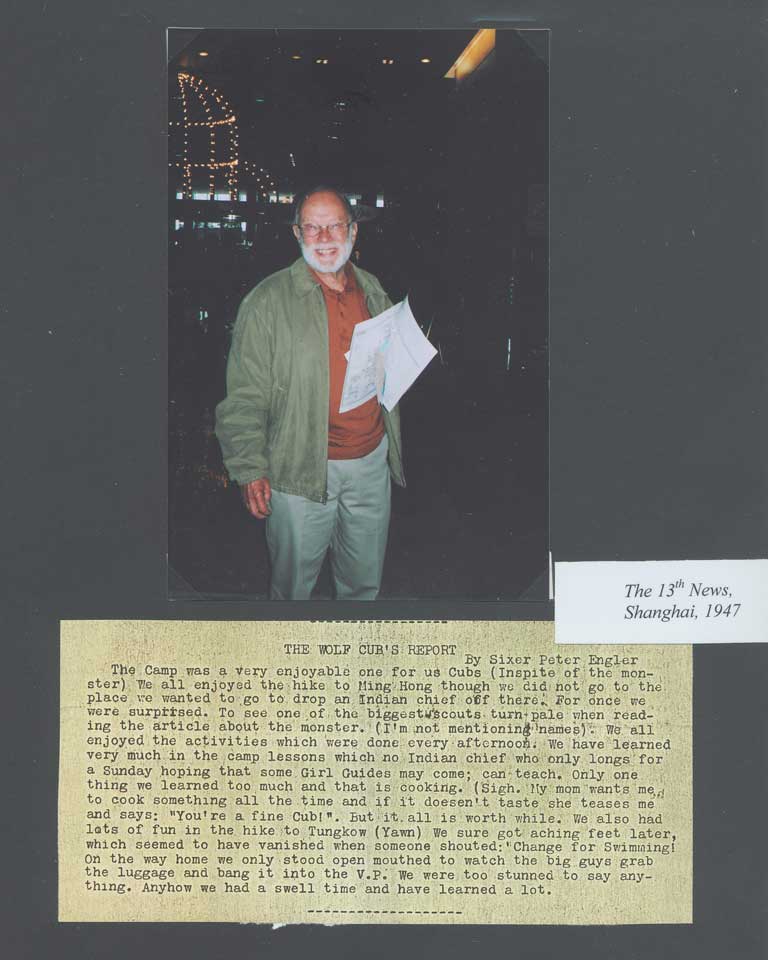 The 13th News,
Shanghai, 1947
THE WOLF CUB'S REPORT
By Sixer Peter Engler
The Camp was a very enjoyable one for us Cubs (Inspite of the mon-
ster) We all enjoyed the hike to Ming Hong though we did not go to the
place we wanted to go to drop an Indian chief off there. For once we
were surprised. To see one of the biggest scouts turn pale when read-
ing the article about the monster. (I'm not mentioning names). We all
enjoyed the activities which were done every afternoon. We have learned
very much in the camp lessons which no Indian chief who only longs for
a Sunday hoping that some Girl Guides may come; can teach. Only one
thing we learned too much and that is cooking. (Sigh. My mom wants me
to cook something all the time and if it doesen't taste she teases me
and says: "You're a fine Cub!". But it all is worth while. We also had
lots of fun in the hike to Tungkow (Yawn) We sure got aching feet later,
which seemed to have vanished when someone shouted:'Change for Swimming!
On the way home we only stood open mouthed to watch the big guys grab
the luggage and bang it into the V.P. We were too stunned to say any-
thing. Anyhow we had a swell time and have learned a lot.